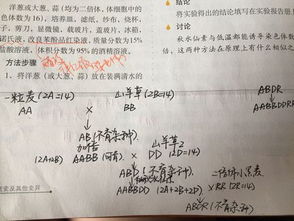 洋葱或大葱、蒜(均为二倍体,体细胞中
色体数为16),培养皿,滤纸,纱布,烧杯,
子,剪刀,显微镜,载玻片,盖玻片,冰箱,
诺氏液,改良苯酚品红染液,质量分数为15%
盐酸溶液,体积分数为95%的酒精溶液。
方法步骤
1. 将洋葱(或大葱、蒜)放在装满清水的
讨论
将实验得出的结论填写在实验报告册
结论
秋水仙素与低温都能诱导染色体数
倍,这两种方法在原理上有什么相似之
一粒麦(2A=14) 山羊草(2B=14)
AA × BB
AB(不育杂种)
加倍
(2A+2B) AABB(可育) × 山羊草2
DD(2D=14)
ABD(不育杂种)
AABBDD(2A+2B+2D) 二倍体小黑麦
×RR(2R=14)
ABDR(不育杂种)
ABDR
AABBDDRR
变及其他变异